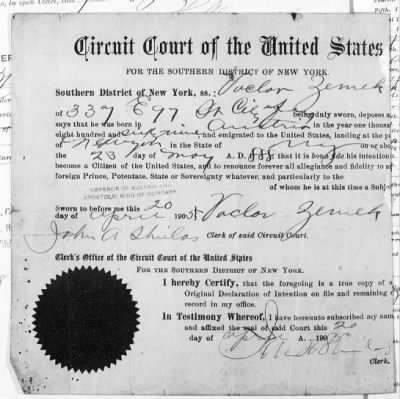 Circuit Court of the United States
FOR THE SOUTHERN DISTRICT OF NEW YORK.
Southern District of New York, ss.: Vaclav Zemek
of 337 E 97 St City being duly sworn, deposes a
says that he was born in Austria in the year one thousa
eight hundred and sixty nine and emigrated to the United States, landing at the p
of N York in the State of NY on or abou
the 23 day of May A. D. that it is bona fide his intentio
become a Citizen of the United States, and to renounce forever all allegiance and fidelity to an
foreign Prince, Potentate, State or Sovereignty whatever, and particularly to the
EMPEROR OF AUSTRIA AND
APOSTOLIC KING OF HUNGARY
of whom he is at this time a Subj
Sworn to before me this 20
day of April 1905 Vaclav Zemek
John A Shields Clerk of said Circuit Court.
Clerk's Office of the Circuit Court of the United States
FOR THE SOUTHERN DISTRICT OF NEW YORK.
I hereby Certify, that the foregoing is a true copy of a
Original Declaration of Intention on file and remaining o
record in my office.
In Testimony Whereof, I have hereunto subscribed my nam
and affixed the seal of said Court this 20
day of April A. 1905
Clerk.